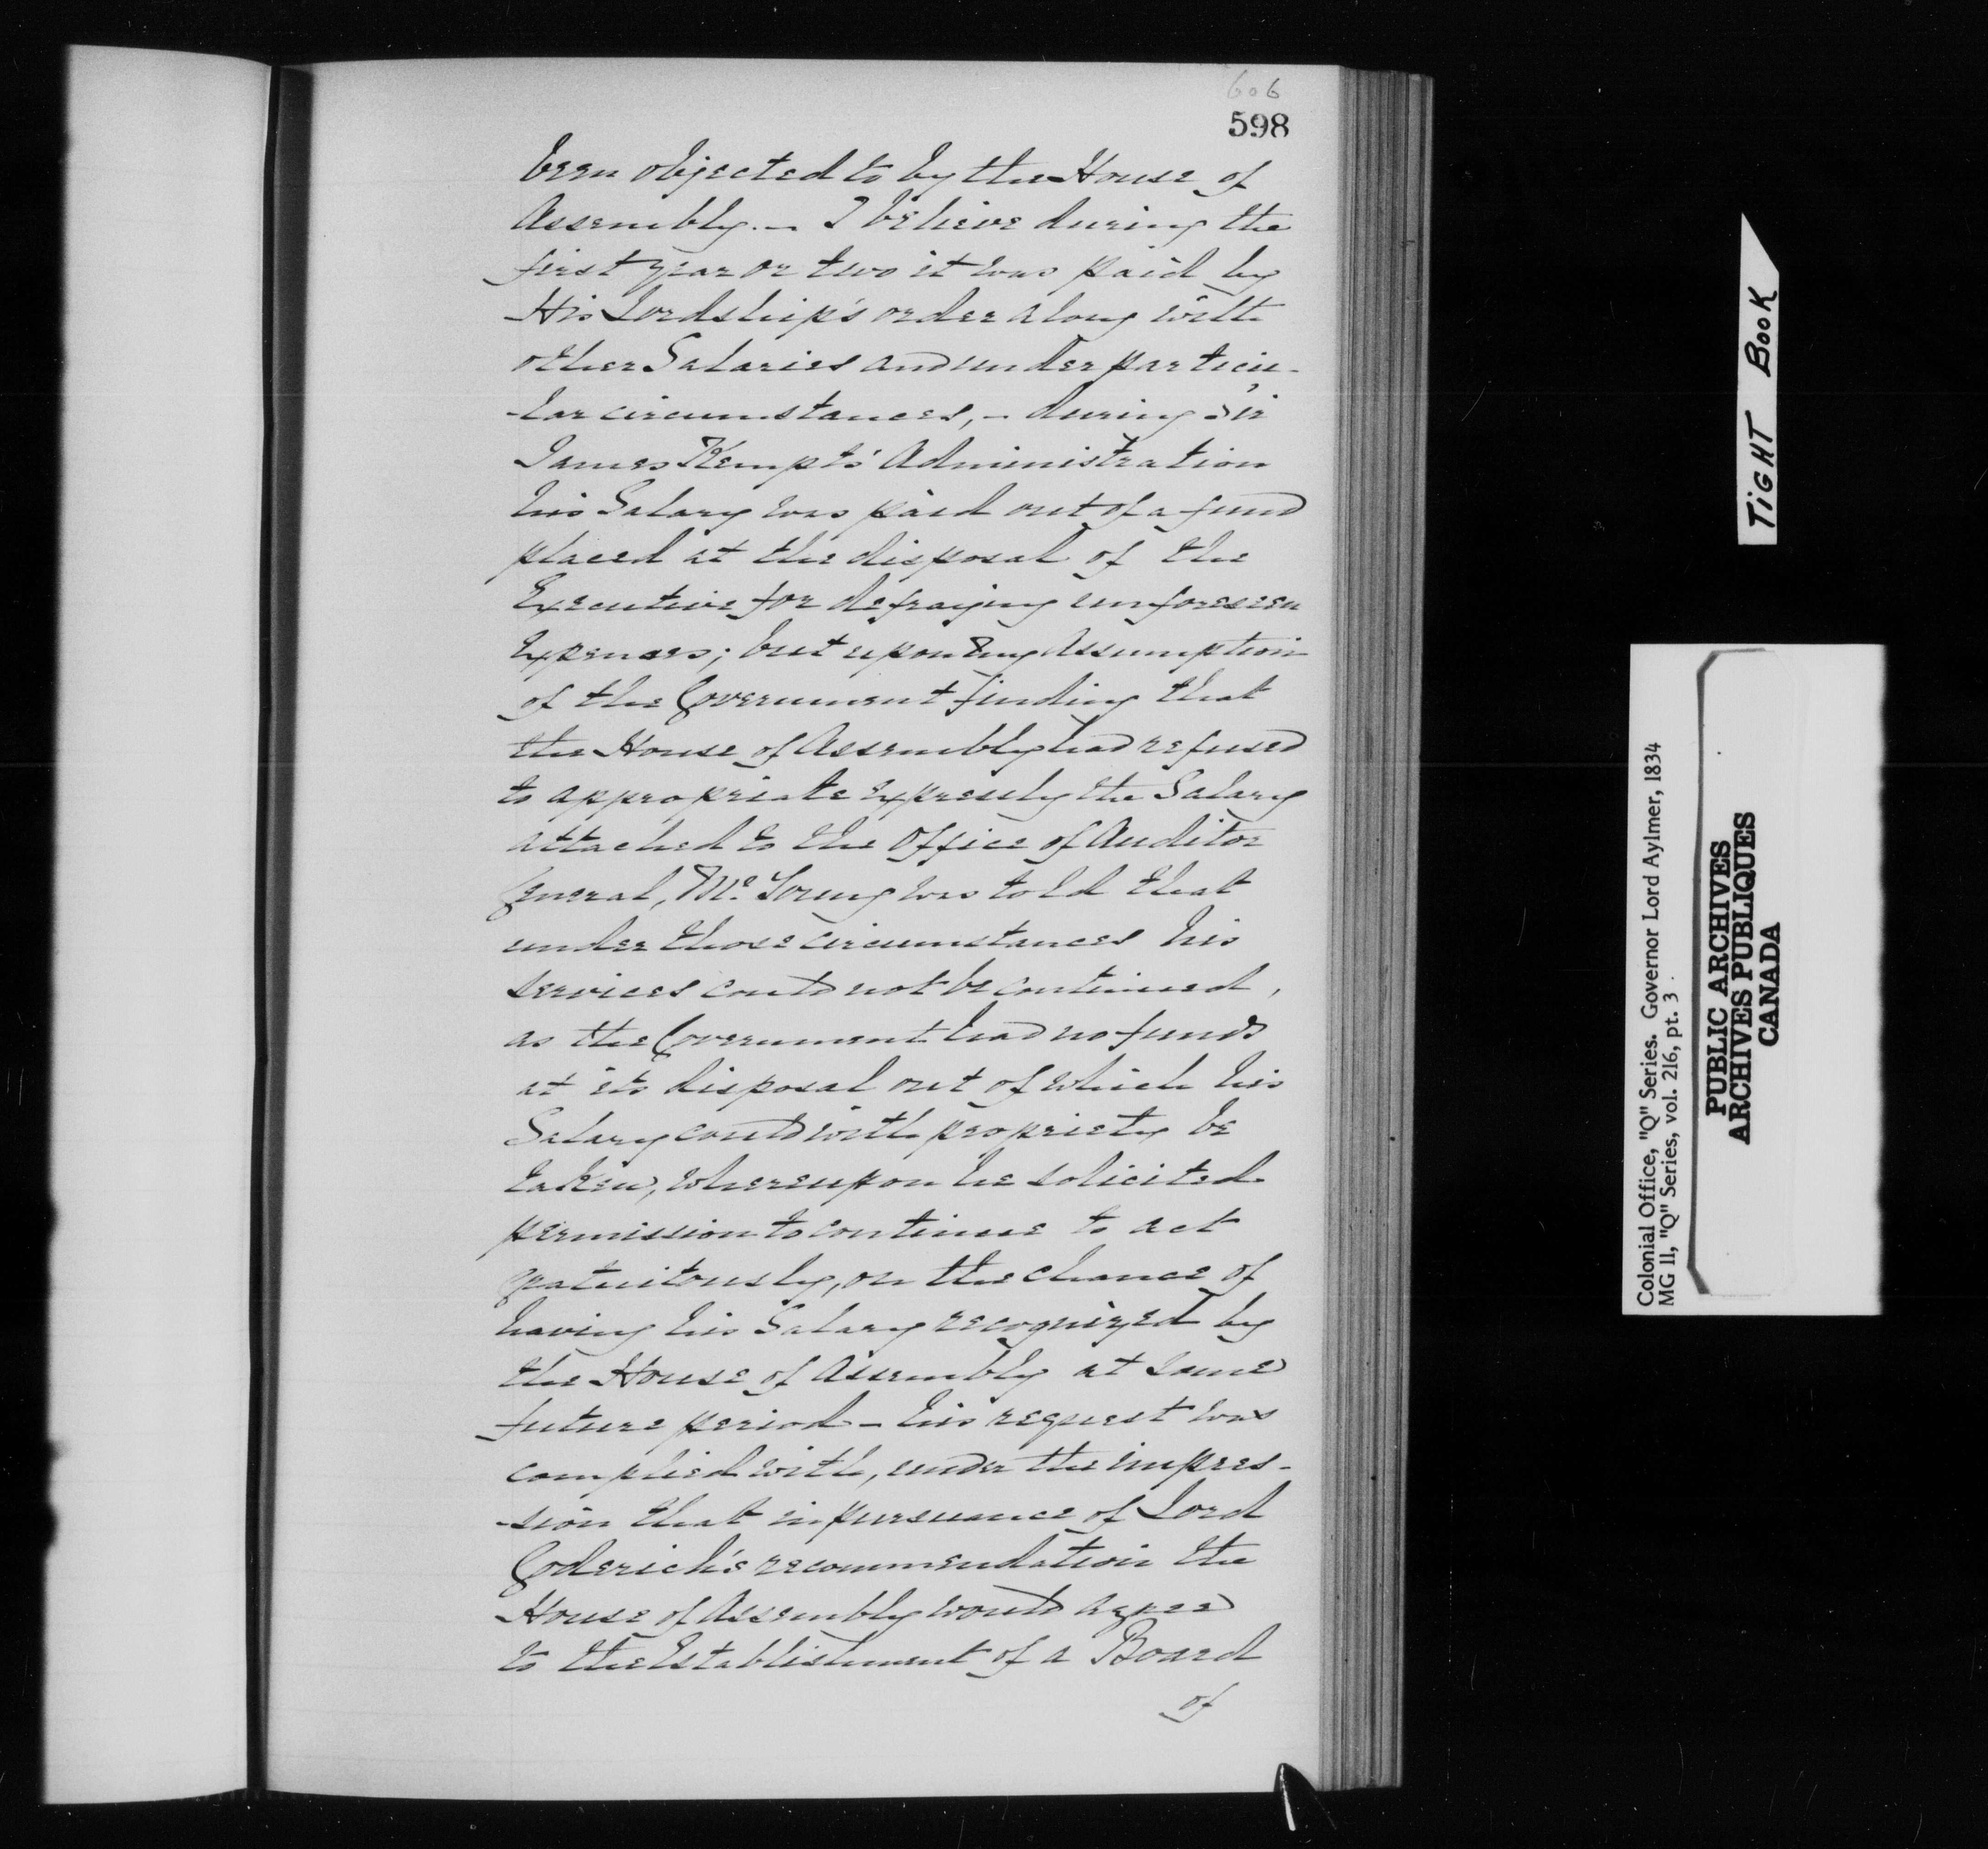 606
598
been objected to by the House of
Assembly. – I believe during the
first year or two it was paid by
His Lordship's order along with
other Salaries and under particu-
-lar circumstances, – during Sir
James Kempts' Administration
his Salary was paid out of a fund
placed at the disposal of the
Executive for defraying unforeseen
Expenses; but upon my Assumption
of the Government finding that
the House of Assembly had refused
to appropriate expressly the Salary
attached to the Office of Auditor
General, Mr. Young was told that
under those circumstances his
services could not be continued,
as the Government had no funds
at its disposal out of which his
Salary could with propriety be
taken, whereupon he solicited
permission to continue to act
gratuitously, on the chance of
having his Salary recognized by
the House of Assembly at some
future period – his request was
complied with, under the impres-
-sion that in pursuance of Lord
Goderich's recommendation the
House of Assembly would agree
to the Establishment of a Board
of
TIGHT BOOK
Colonial Office, "Q" Series. Governor Lord Aylmer, 1834
MG 11, "Q" Series, vol. 216, pt. 3
PUBLIC ARCHIVES
ARCHIVES PUBLIQUES
CANADA